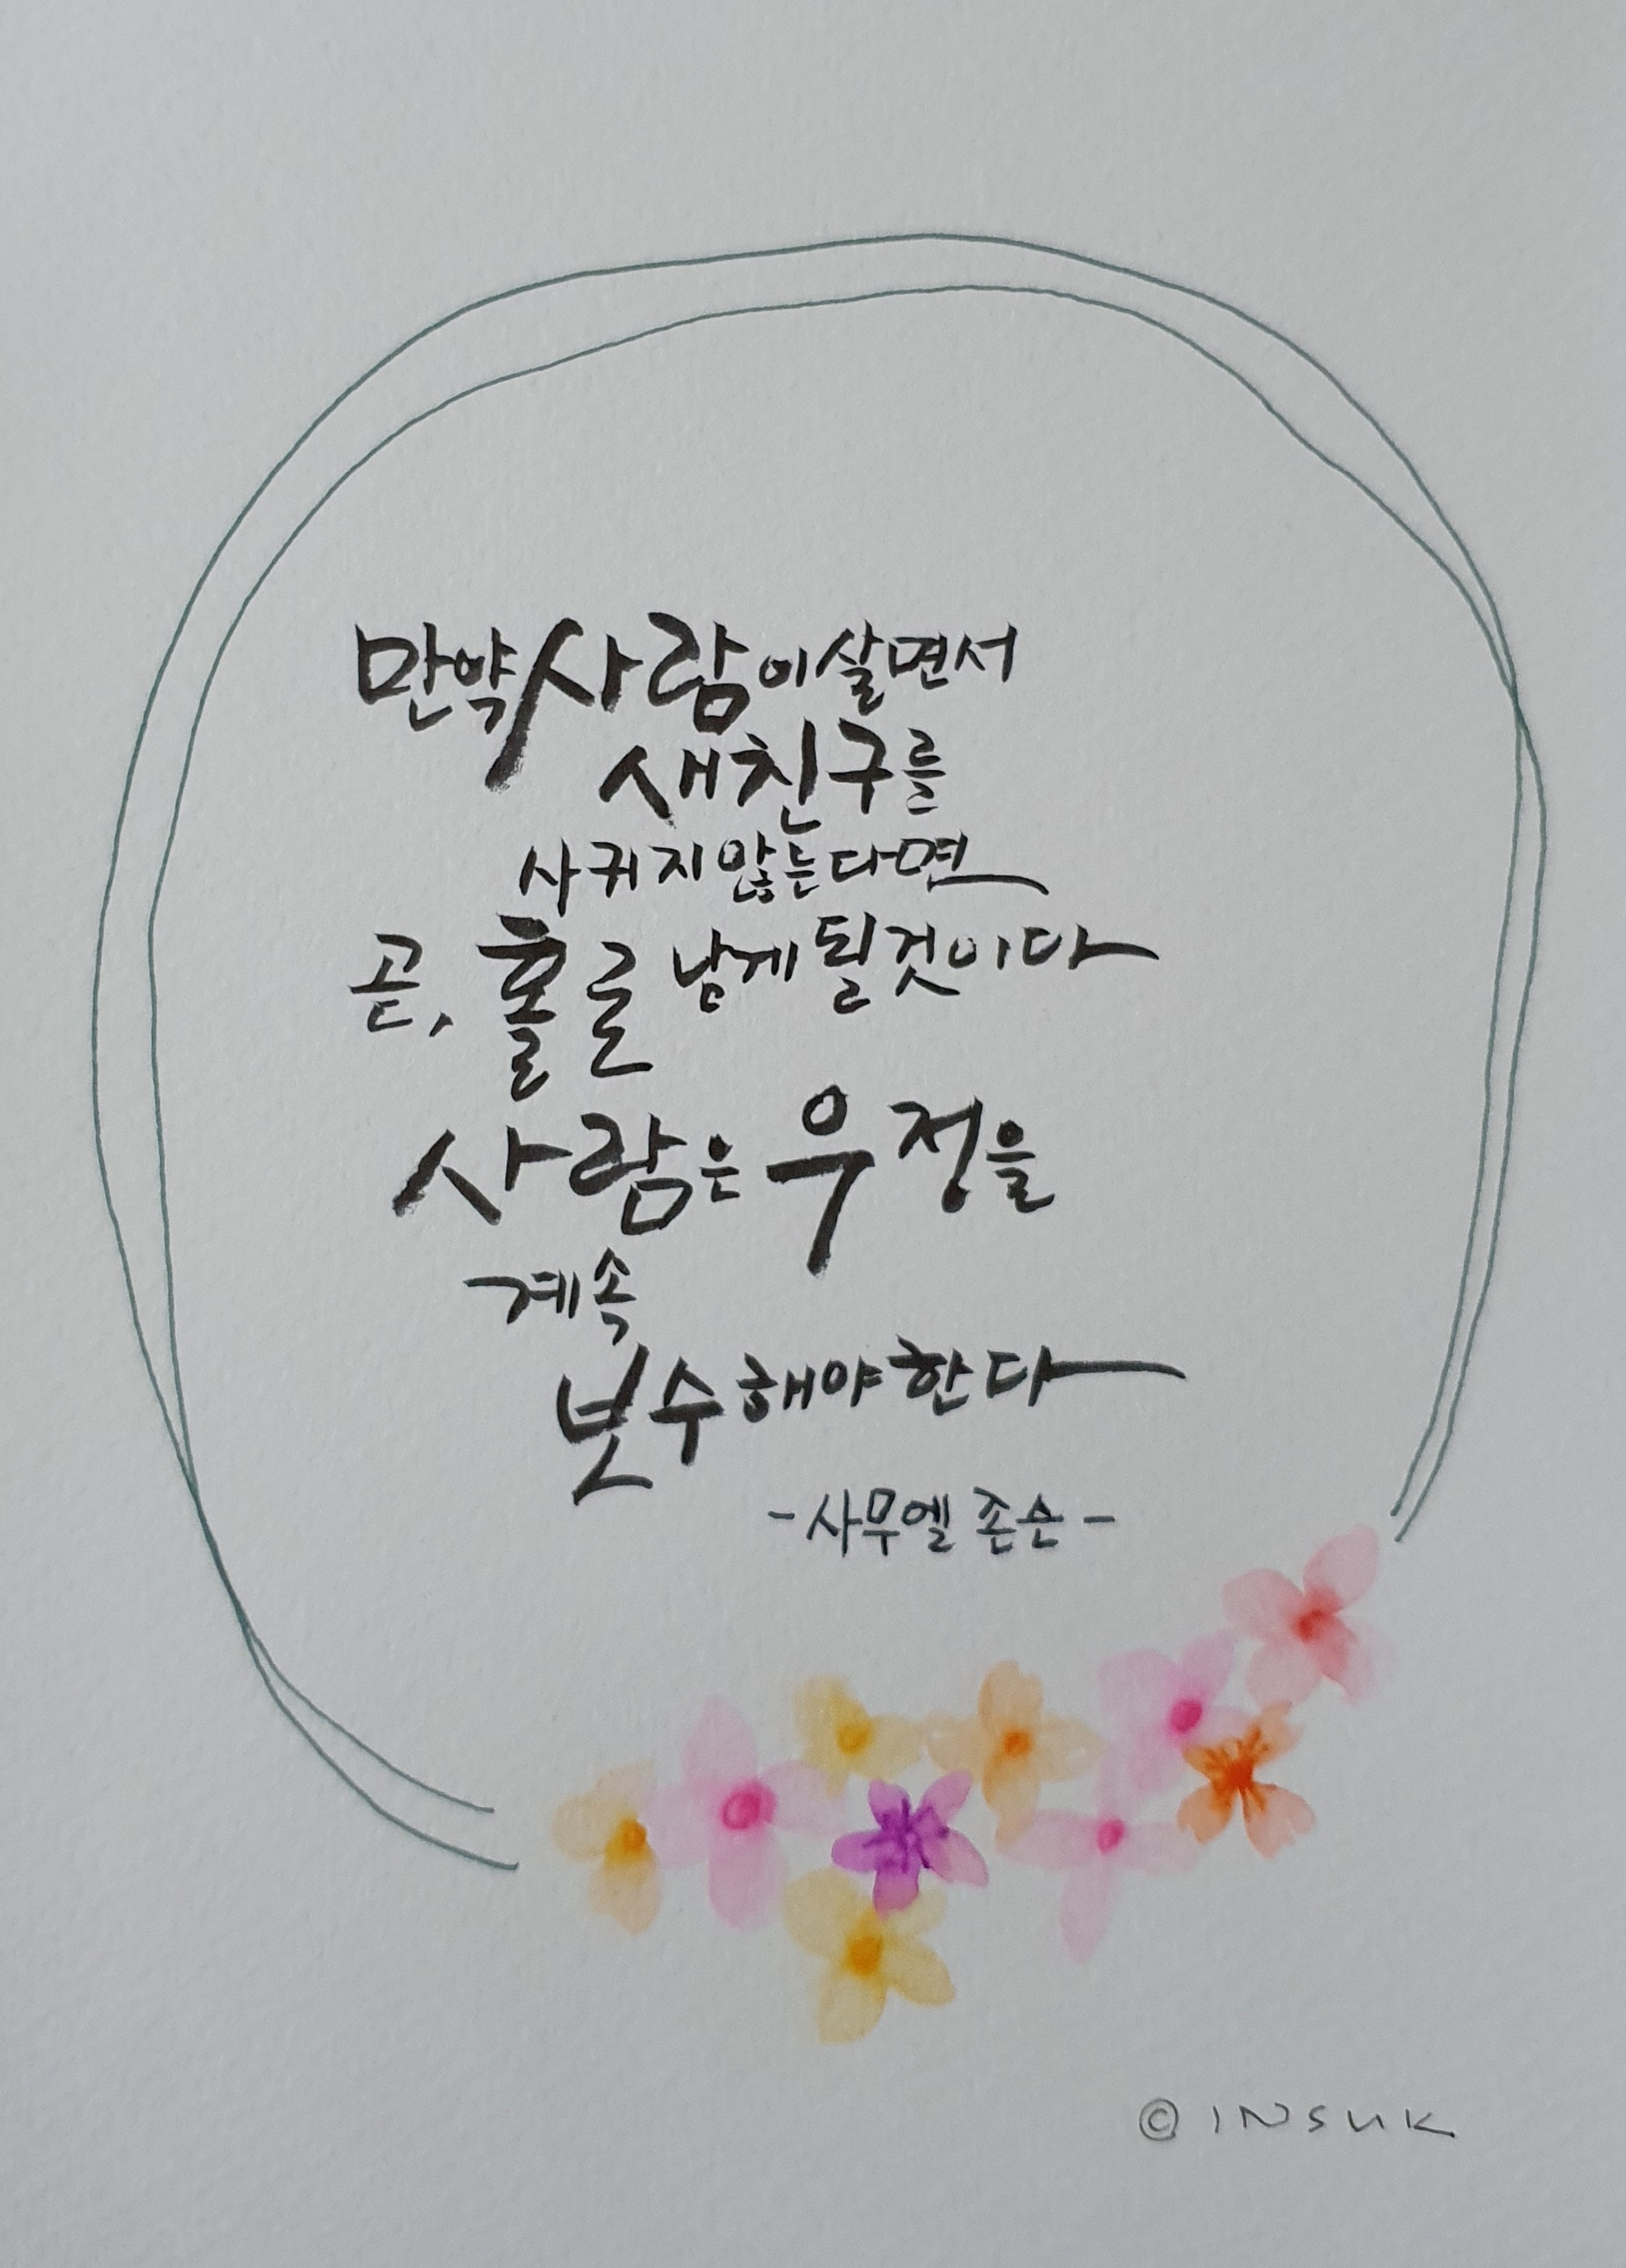 만약 사람이 살면서
새친구를
사귀지 않는다면
곧, 홀로 남게 될것이다
사람은 우정을
계속
보수해야한다
-사무엘 존슨-
© INSUK